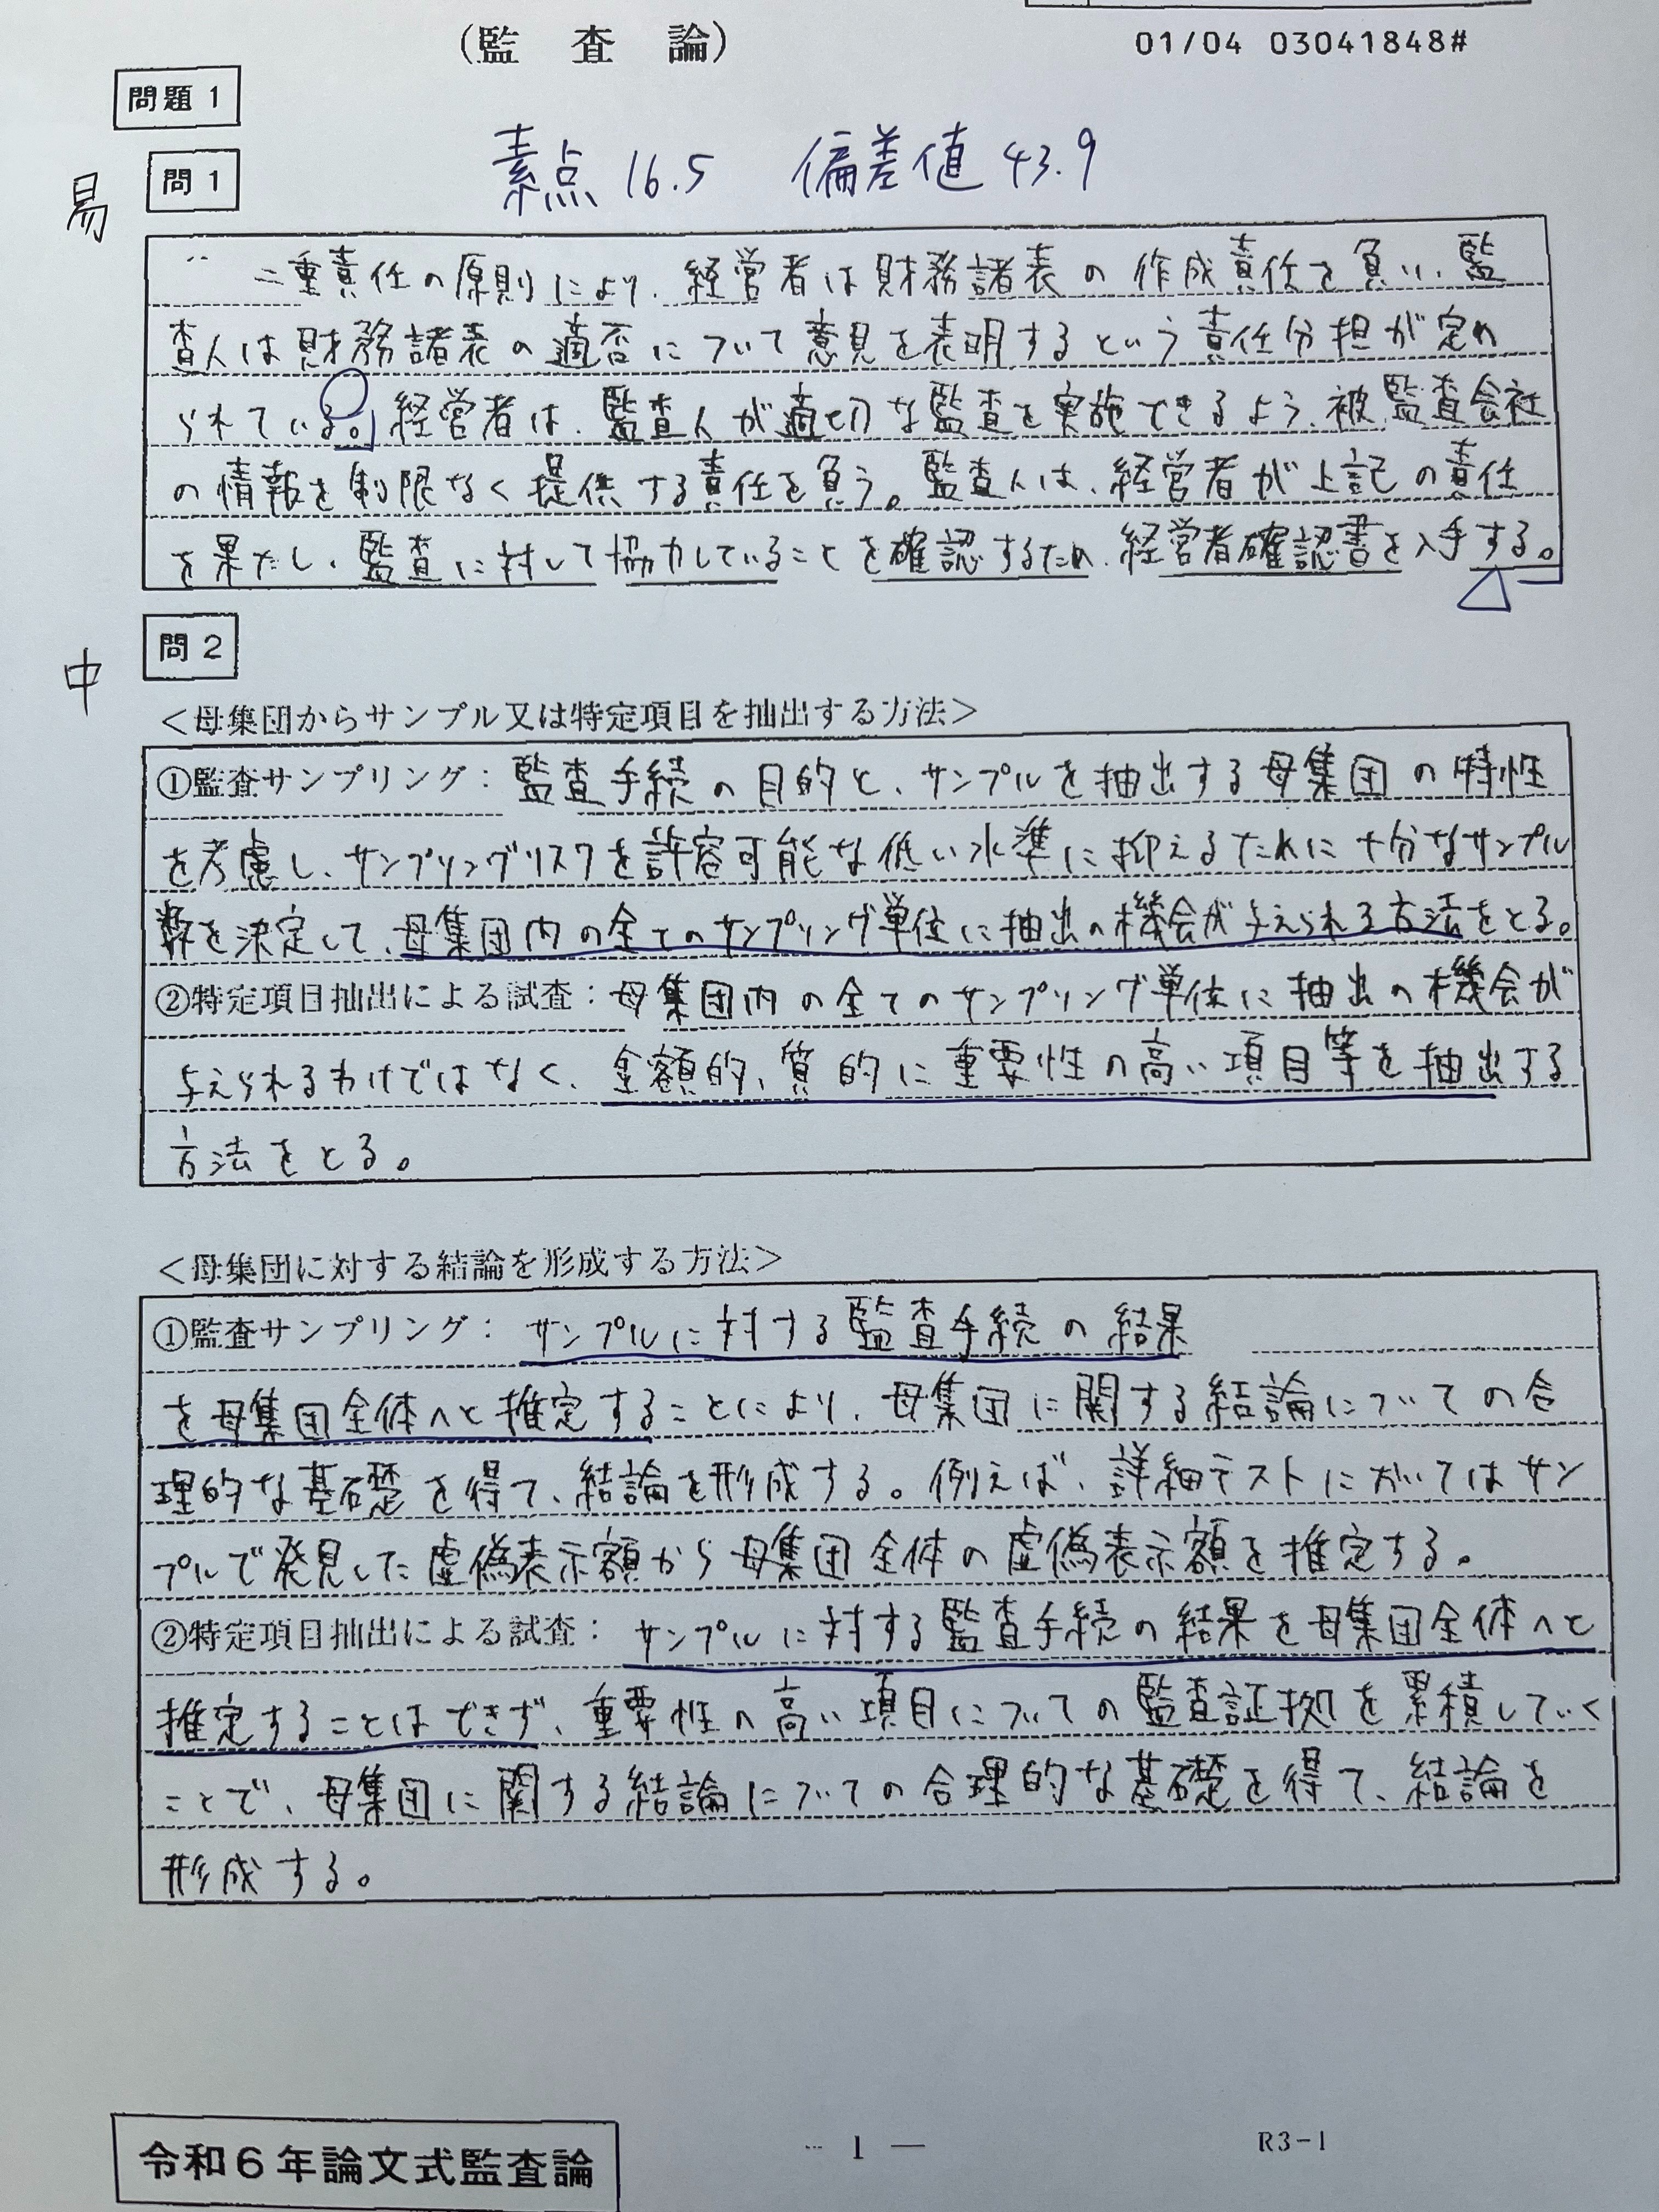 (監査論)
01/04 03041848#
問題1
素点 16.5 偏差値 43.9
易
問1
二重責任の原則により、経営者は財務諸表の作成責任を負い、監
査人は財務諸表の適否について意見を表明するという責任分担が定め
られている。経営者は、監査人が適切な監査を実施できるよう、被監査会社
の情報を制限なく提供する責任を負う。監査人は、経営者が上記の責任
を果たし、監査に対して協力していることを確認するため、経営者確認書を入手する。
中
問2
<母集団からサンプル又は特定項目を抽出する方法>
①監査サンプリング:監査手続の目的と、サンプルを抽出する母集団の特性
を考慮し、サンプリングリスクを許容可能な低い水準に抑えるために十分なサンプル
数を決定して、母集団内の全てのサンプリング単位に抽出の機会が与えられる方法をとる。
②特定項目抽出による試査:母集団内の全てのサンプリング単位に抽出の機会が
与えられるわけではなく、金額的、質的に重要性の高い項目等を抽出する
方法をとる。
<母集団に対する結論を形成する方法>
①監査サンプリング:サンプルに対する監査手続の結果
を母集団全体へと推定することにより、母集団に関する結論についての合
理的な基礎を得て、結論を形成する。例えば、詳細テストにおいてはサン
プルで発見した虚偽表示額から母集団全体の虚偽表示額を推定する。
②特定項目抽出による試査:サンプルに対する監査手続の結果を母集団全体へと
推定することはできず、重要性の高い項目についての監査証拠を累積していく
ことで、母集団に関する結論についての合理的な基礎を得て、結論を
形成する。
令和6年論文式監査論
— 1 —
R3-1